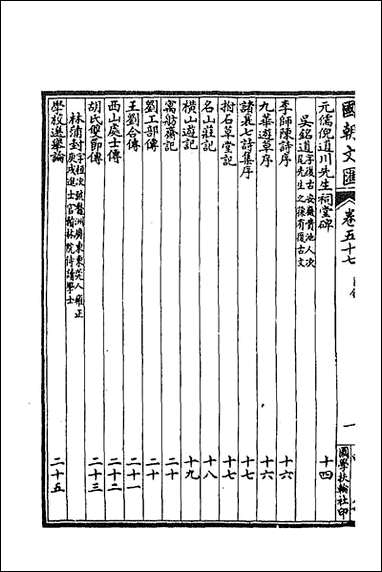 國朝文匯 卷五十七 目錄 一 國學扶輪社印
元儒倪道川先生祠堂碑 十四
吳銘道 字復古安徽貴池人次尾先生之孫有復古文
李師陳詩序 十六
九華遊草序 十六
諸襄七詩集序 十七
樹石草堂記 十七
名山莊記 十八
橫山遊記 十九
寓舫齋記 二十
劉工部傳 二十
王劉合傳 二十一
西山處士傳 二十二
胡氏雙節傳 二十三
林蒲封 字桓次號鼇洲廣東東莞人雍正庚戌進士官翰林院侍讀學士
學校選舉論 二十五